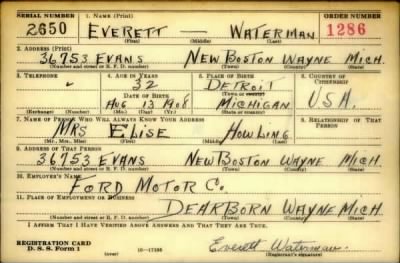 SERIAL NUMBER 1. NAME (Print) ORDER NUMBER
2650 EVERETT — WATERMAN 1286
(First) (Middle) (Last)
2. ADDRESS (Print)
36753 EVANS NEW BOSTON WAYNE MICH.
(Number and street or R. F. D. number) (Town) (County) (State)
3. TELEPHONE 4. AGE IN YEARS 5. PLACE OF BIRTH 6. COUNTRY OF CITIZENSHIP
32 DETROIT
DATE OF BIRTH (Town or county)
AUG 13 1908 MICHIGAN U.S.A.
(Exchange) (Number) (Mo.) (Day) (Yr.) (State or country)
7. NAME OF PERSON WHO WILL ALWAYS KNOW YOUR ADDRESS 8. RELATIONSHIP OF THAT PERSON
MRS ELISE HOWLING
(Mr., Mrs., Miss) (First) (Middle) (Last)
9. ADDRESS OF THAT PERSON
36753 EVANS NEW BOSTON WAYNE MICH.
(Number and street or R. F. D. number) (Town) (County) (State)
10. EMPLOYER'S NAME
FORD MOTOR CO.
11. PLACE OF EMPLOYMENT OR BUSINESS
DEARBORN WAYNE MICH.
(Number and street or R. F. D. number) (Town) (County) (State)
I AFFIRM THAT I HAVE VERIFIED ABOVE ANSWERS AND THAT THEY ARE TRUE.
REGISTRATION CARD
D. S. S. Form 1 16—17105 Everett Waterman.
(Registrant's signature)